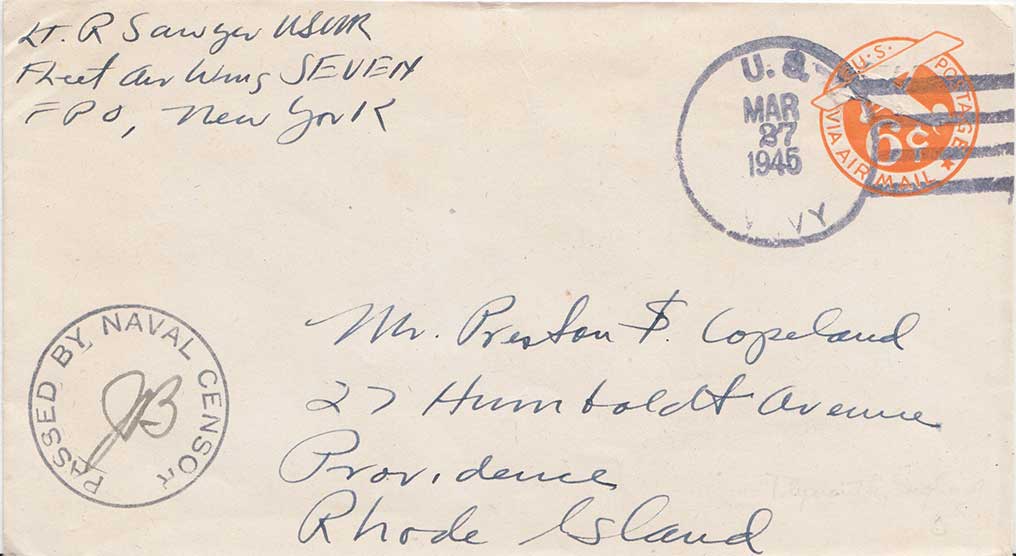 Lt. R Sawyer USNR
Fleet Air Wing SEVEN
FPO, New York
U.S.
MAR
27
1945
NAVY
U.S. POSTAGE
6c
VIA AIR MAIL
Mr. Preston F. Copeland
27 Humboldt Avenue
Providence
Rhode Island
PASSED BY NAVAL CENSOR
JB